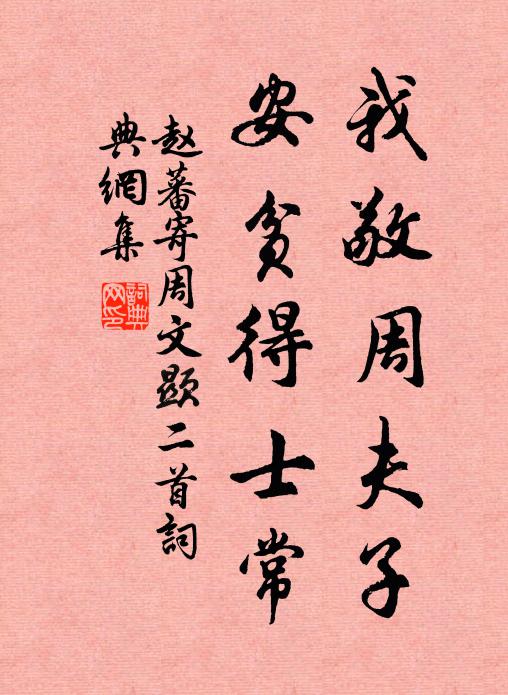 我敬周夫子
安贫得士常
赵蕃寄周文显二首詞
典網集
詞典网印